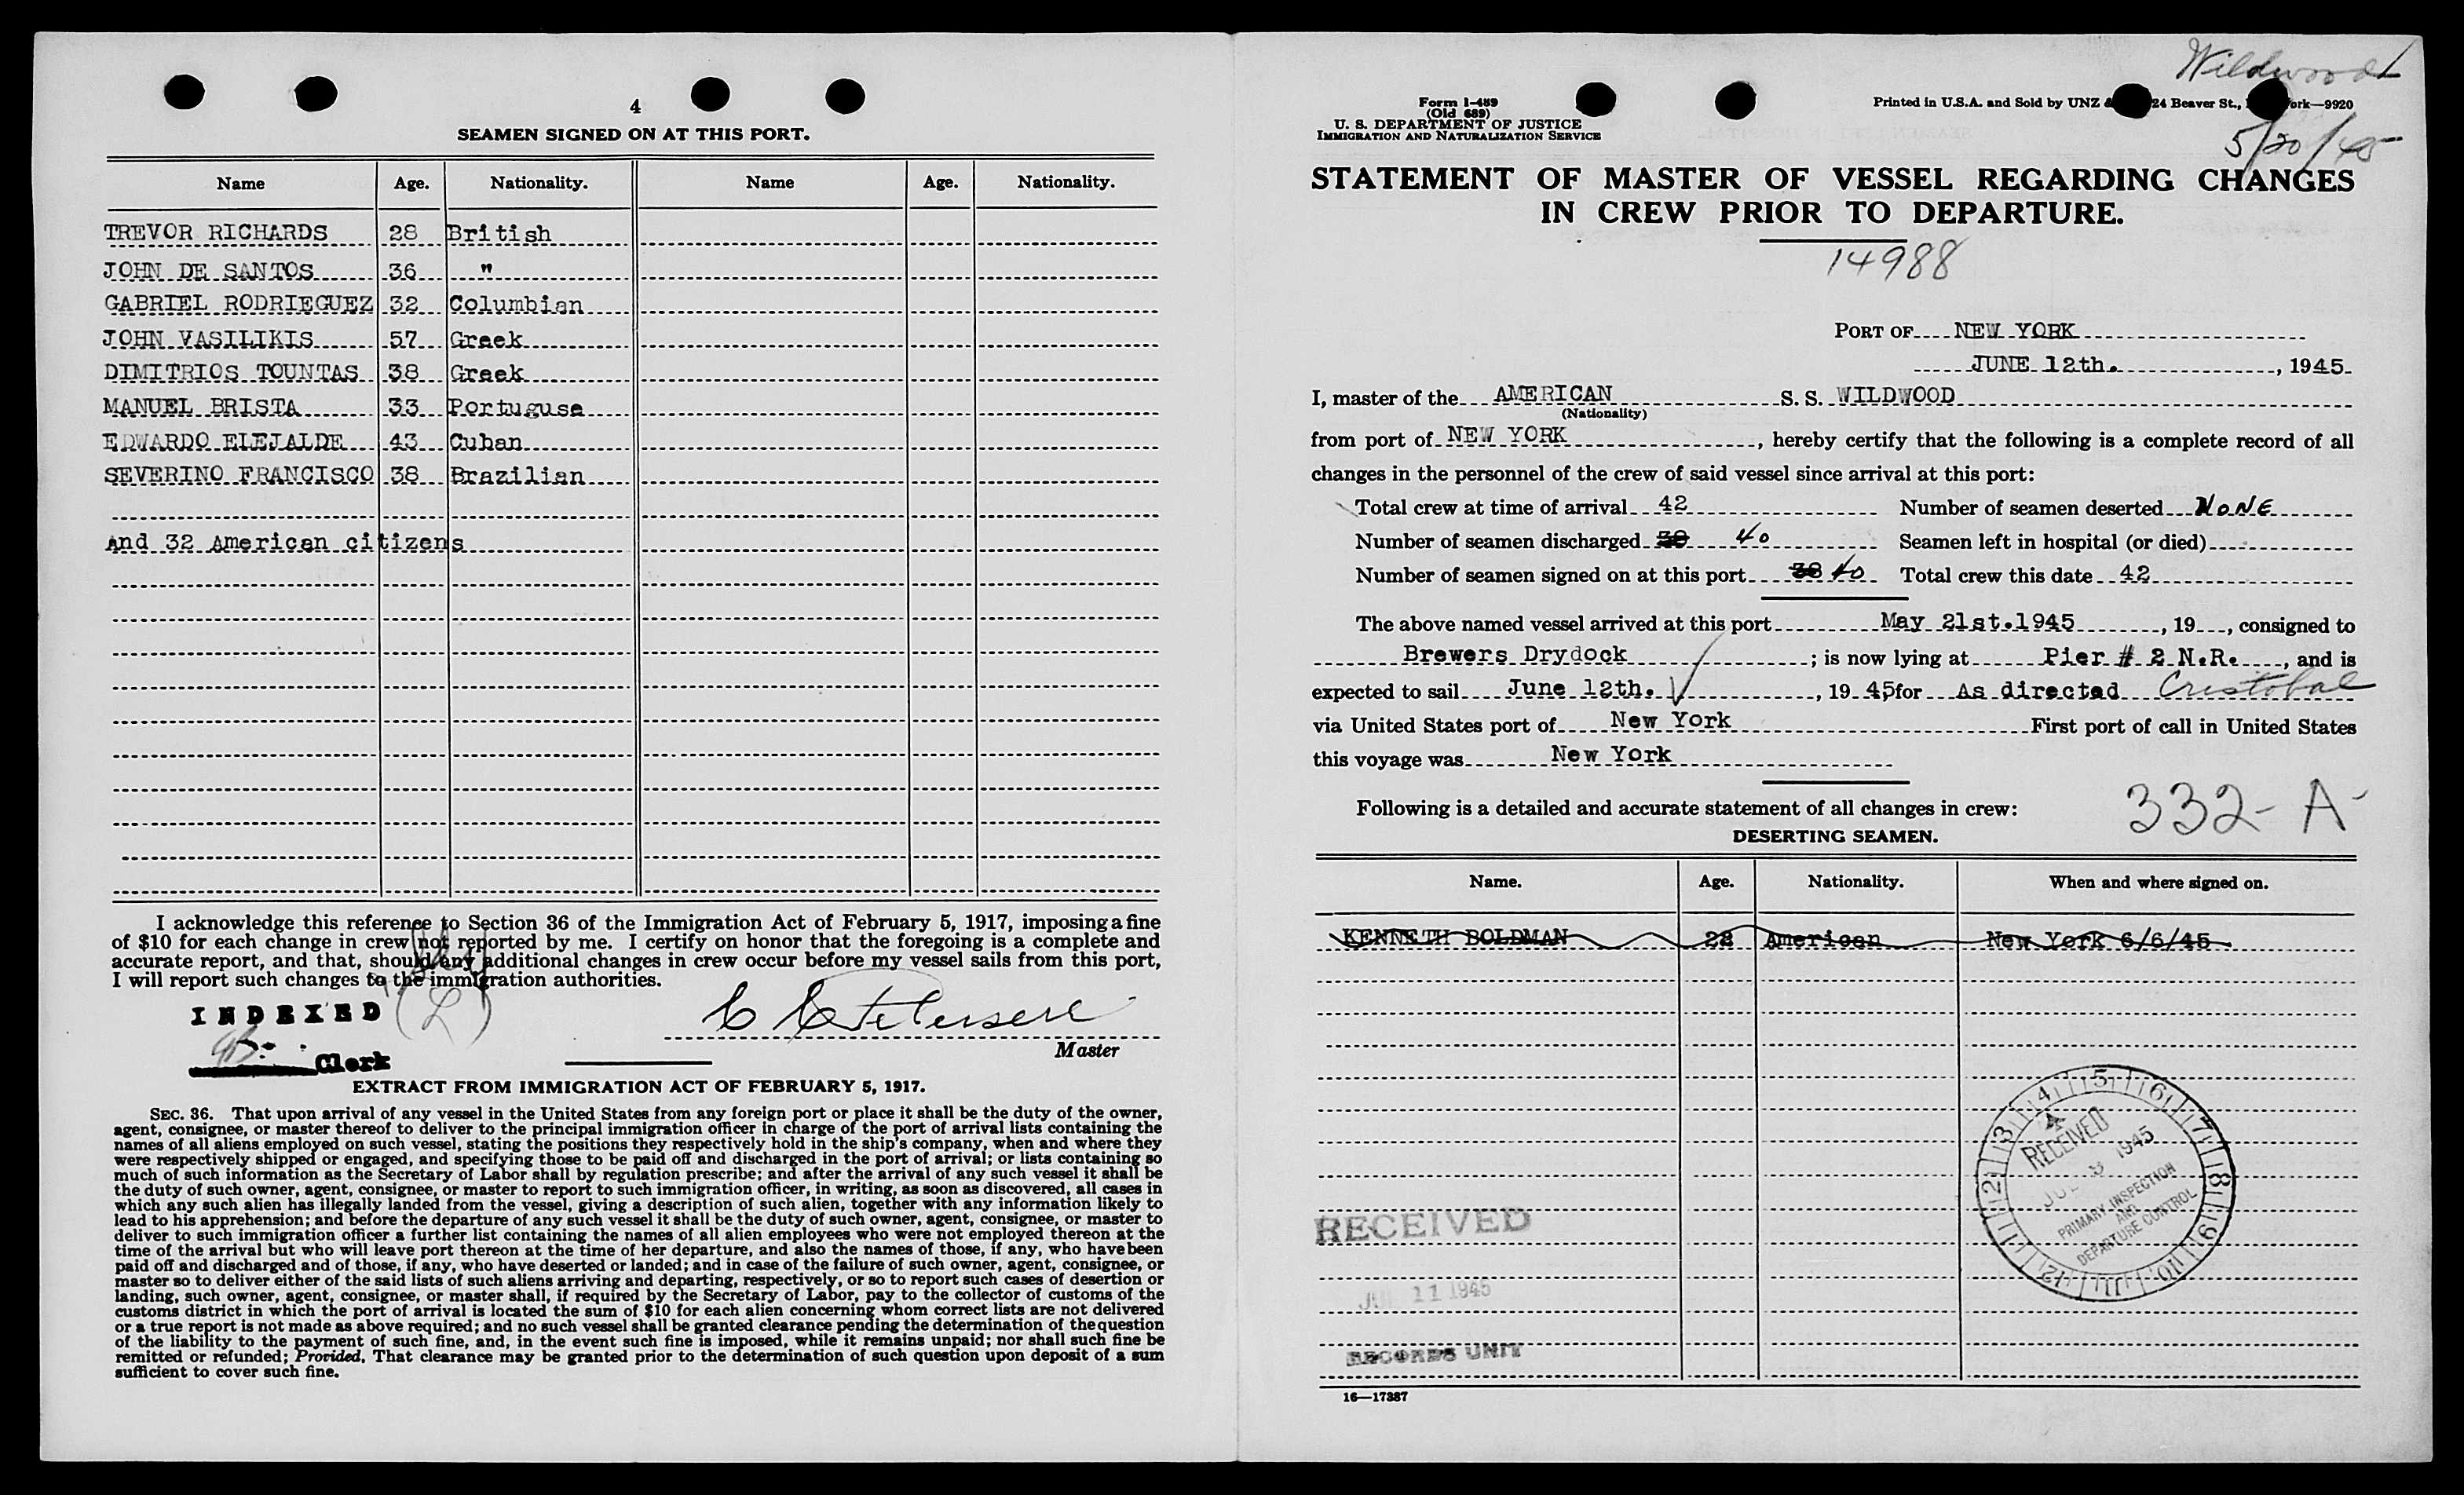 4
SEAMEN SIGNED ON AT THIS PORT.
Name Age. Nationality. Name Age. Nationality.
TREVOR RICHARDS 28 British
JOHN DE SANTOS 36 "
GABRIEL RODRIEGUEZ 32 Columbian
JOHN VASILIKIS 57 Greek
DIMITRIOS TOUNTAS 38 Greek
MANUEL BRISTA 33 Portuguse
EDWARDO ELEJALDE 43 Cuban
SEVERINO FRANCISCO 38 Brazilian
And 32 American citizens
I acknowledge this reference to Section 36 of the Immigration Act of February 5, 1917, imposing a fine
of $10 for each change in crew not reported by me. I certify on honor that the foregoing is a complete and
accurate report, and that, should any additional changes in crew occur before my vessel sails from this port,
I will report such changes to the immigration authorities.
INDEXED
Clerk
Master
EXTRACT FROM IMMIGRATION ACT OF FEBRUARY 5, 1917.
SEC. 36. That upon arrival of any vessel in the United States from any foreign port or place it shall be the duty of the owner,
agent, consignee, or master thereof to deliver to the principal immigration officer in charge of the port of arrival lists containing the
names of all aliens employed on such vessel, stating the positions they respectively hold in the ship's company, when and where they
were respectively shipped or engaged, and specifying those to be paid off and discharged in the port of arrival; or lists containing so
much of such information as the Secretary of Labor shall by regulation prescribe; and after the arrival of any such vessel it shall be
the duty of such owner, agent, consignee, or master to report to such immigration officer, in writing, as soon as discovered, all cases in
which any such alien has illegally landed from the vessel, giving a description of such alien, together with any information likely to
lead to his apprehension; and before the departure of any such vessel it shall be the duty of such owner, agent, consignee, or master to
deliver to such immigration officer a further list containing the names of all alien employees who were not employed thereon at the
time of the arrival but who will leave port thereon at the time of her departure, and also the names of those, if any, who have been
paid off and discharged and of those, if any, who have deserted or landed; and in case of the failure of such owner, agent, consignee, or
master so to deliver either of the said lists of such aliens arriving and departing, respectively, or so to report such cases of desertion or
landing, such owner, agent, consignee, or master shall, if required by the Secretary of Labor, pay to the collector of customs of the
customs district in which the port of arrival is located the sum of $10 for each alien concerning whom correct lists are not delivered
or a true report is not made as above required; and no such vessel shall be granted clearance pending the determination of the question
of the liability to the payment of such fine, and, in the event such fine is imposed, while it remains unpaid; nor shall such fine be
remitted or refunded; Provided, That clearance may be granted prior to the determination of such question upon deposit of a sum
sufficient to cover such fine.
Wildwood
5/20/45
Form I-489
(Old 689)
U. S. DEPARTMENT OF JUSTICE
IMMIGRATION AND NATURALIZATION SERVICE
Printed in U.S.A. and Sold by UNZ & 24 Beaver St., ork—9920
STATEMENT OF MASTER OF VESSEL REGARDING CHANGES
IN CREW PRIOR TO DEPARTURE.
14988
PORT OF NEW YORK
JUNE 12th. , 1945
I, master of the AMERICAN S. S. WILDWOOD
(Nationality)
from port of NEW YORK , hereby certify that the following is a complete record of all
changes in the personnel of the crew of said vessel since arrival at this port:
Total crew at time of arrival 42 Number of seamen deserted NONE
Number of seamen discharged 38 40 Seamen left in hospital (or died)
Number of seamen signed on at this port 38 40 Total crew this date 42
The above named vessel arrived at this port May 21st.1945 , 19 , consigned to
Brewers Drydock ; is now lying at Pier # 2 N.R. , and is
expected to sail June 12th. , 19 45 for As directed Cristobal
via United States port of New York First port of call in United States
this voyage was New York
Following is a detailed and accurate statement of all changes in crew:
332-A
DESERTING SEAMEN.
Name. Age. Nationality. When and where signed on.
KENNETH BOLDMAN 28 American New York 6/6/45
RECEIVED
11 1945
RECORDS UNIT
RECEIVED
1945
PRIMARY INSPECTION
AND
DEPARTURE CONTROL
1 2 3 4 5 6 7 8 9 10 11 12
16—17387